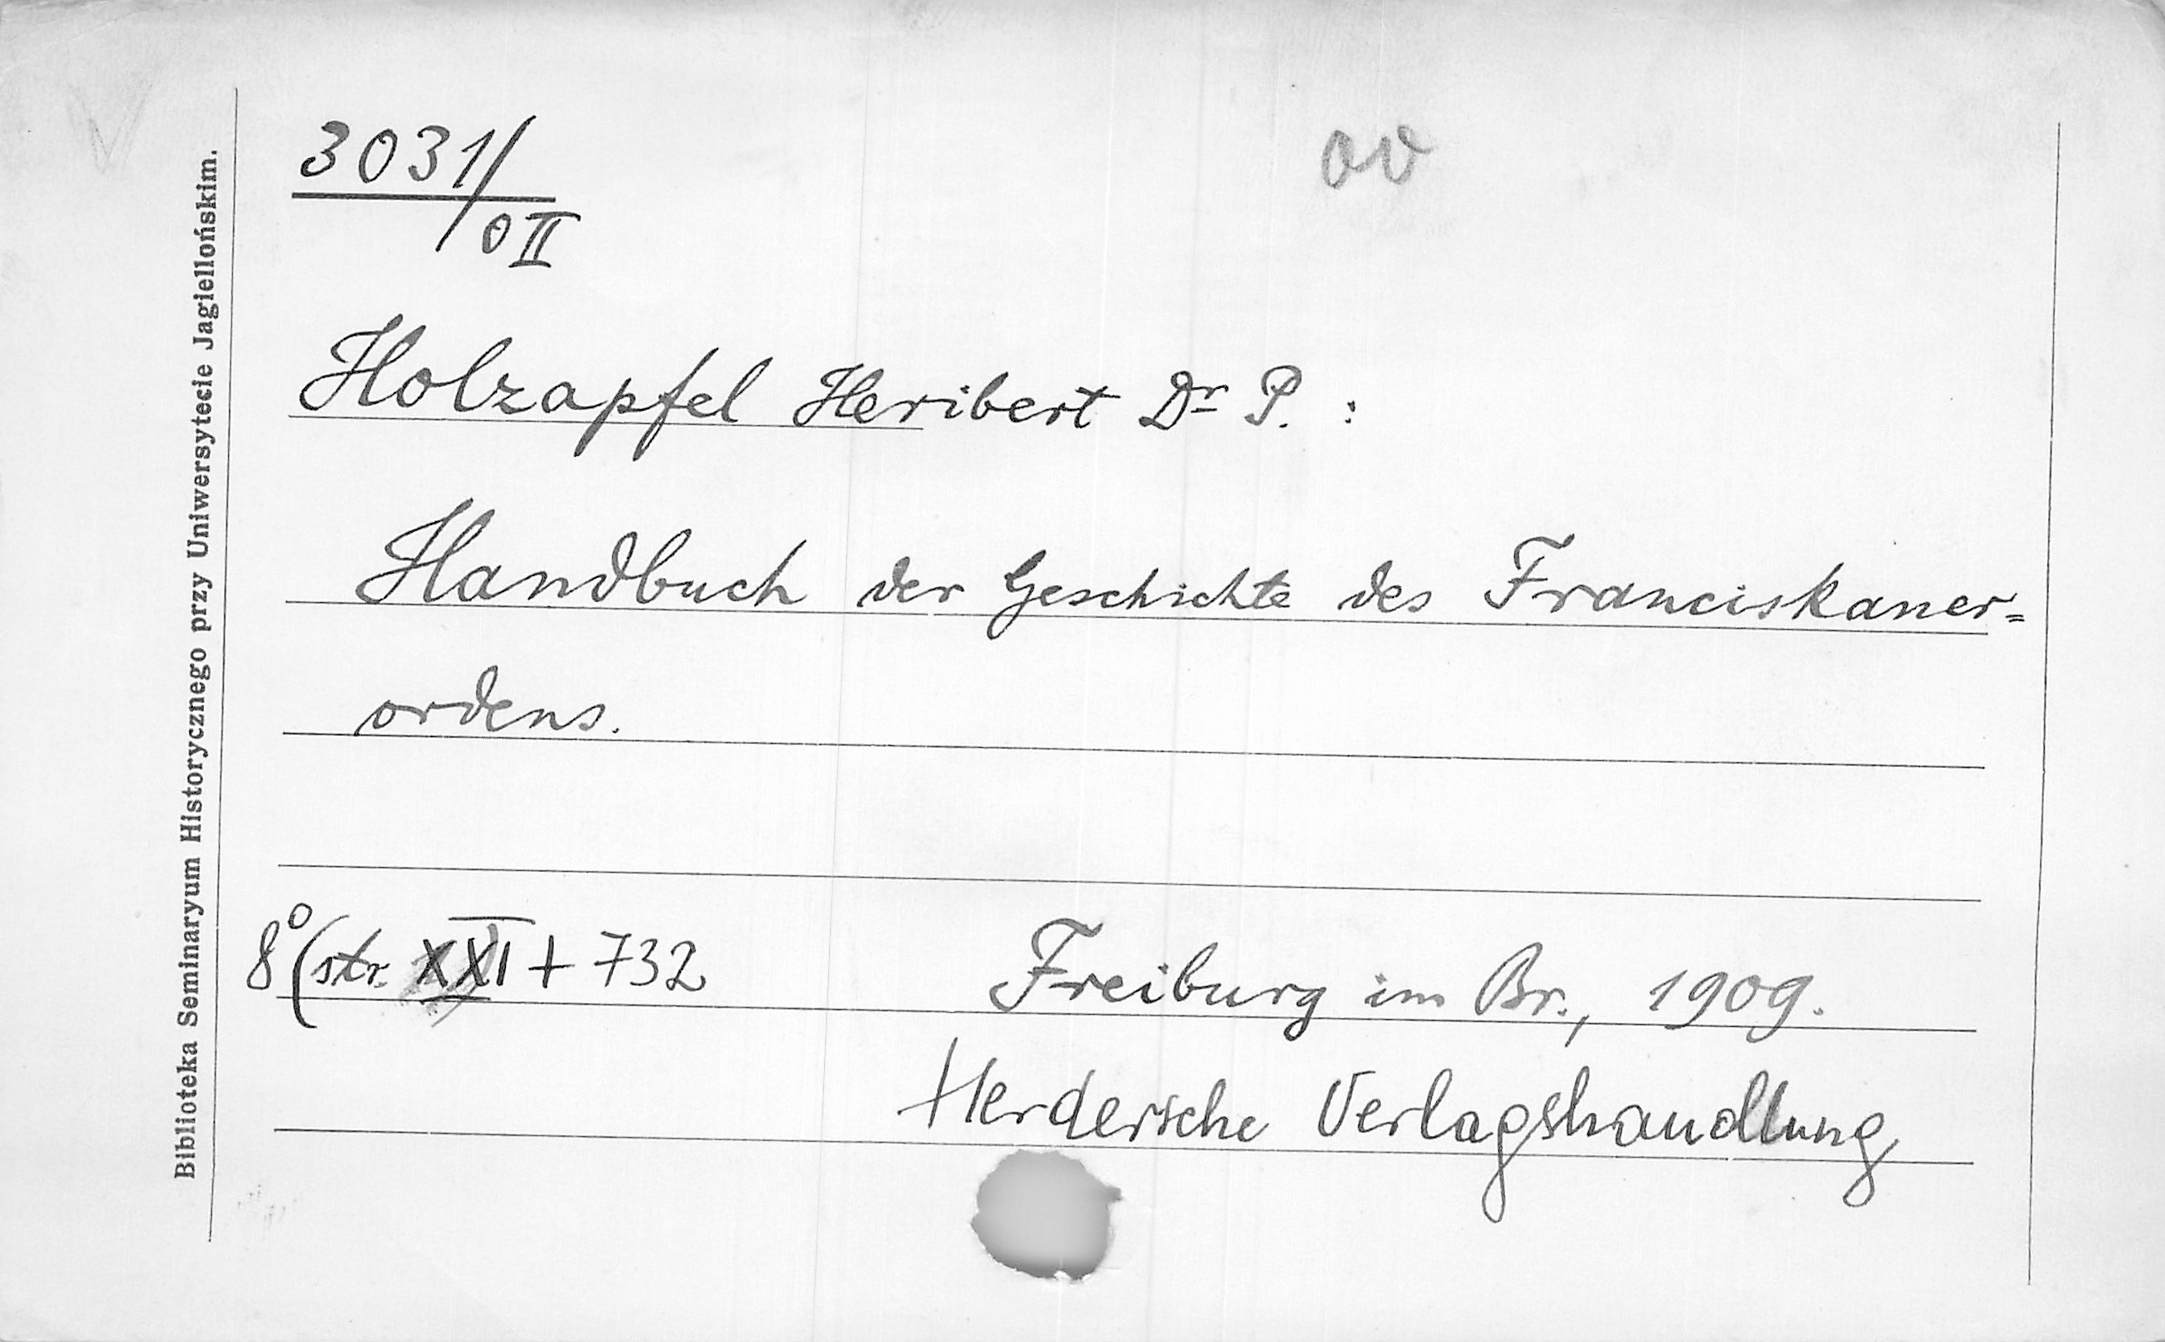 3031/
0 II
ov
Holzapfel Heribert Dr P. :
Handbuch der Geschichte des Franciskaner=
ordens.
8° (str. XXI + 732
Freiburg im Br., 1909.
Herdersche Verlagshandlung
Biblioteka Seminaryum Historycznego przy Uniwersytecie Jagiellońskim.